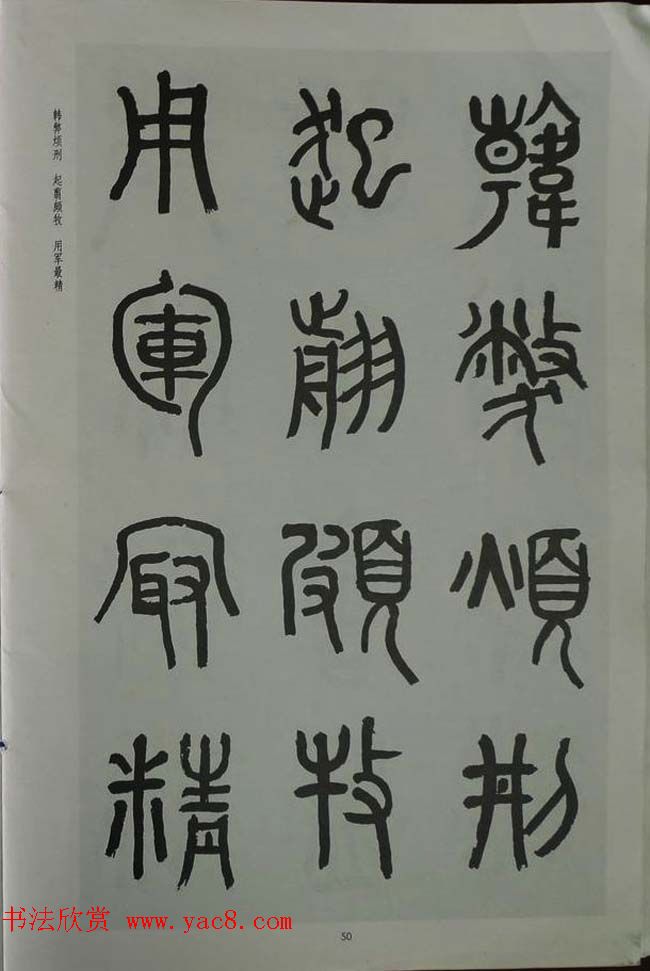 韓弊煩刑
起翦頗牧
用軍最精
韩弊烦刑　起翦颇牧　用军最精
书法欣赏 www.yac8.com
50